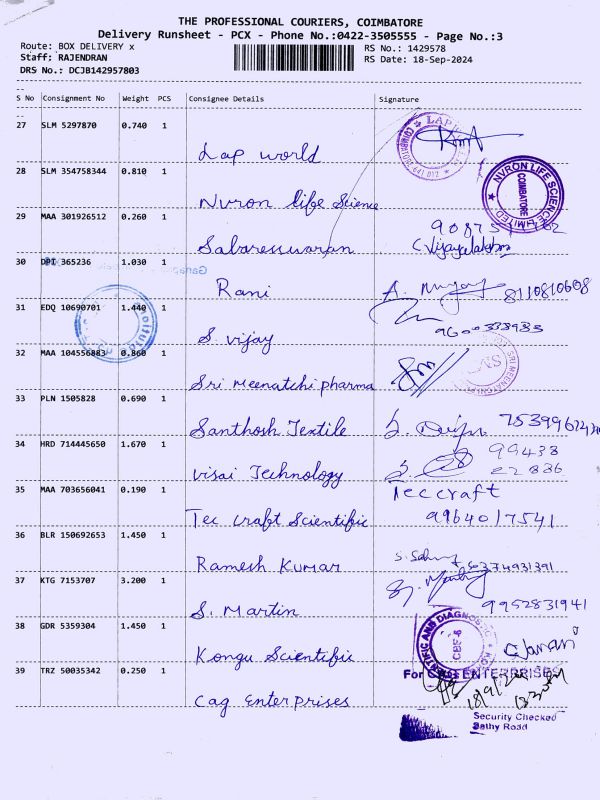 THE PROFESSIONAL COURIERS, COIMBATORE
Delivery Runsheet - PCX - Phone No.:0422-3505555 - Page No.:3
Route: BOX DELIVERY x
RS No.: 1429578
Staff: RAJENDRAN
RS Date: 18-Sep-2024
DRS No.: DCJB142957803
S No Consignment No Weight PCS Consignee Details Signature
27 SLM 5297870 0.740 1
Lap world
28 SLM 354758344 0.810 1
Nvron life Science
NVRON LIFE SCIENCE LIMITED
COIMBATORE
29 MAA 301926512 0.260 1
Sabareswaran C Vijayalakshmi
30 DPI 365236 1.030 1
Rani 8110810608
31 EDQ 10690701 1.440 1
S. vijay 9600333933
32 MAA 104556883 0.860 1
Sri meenatchi pharma
33 PLN 1505828 0.690 1
Santhosh Textile
34 HRD 714445650 1.670 1
99433
Visai Technology 22836
35 MAA 703656041 0.190 1
Teccraft
Tec craft Scientific 9964017541
36 BLR 150692653 1.450 1
Ramesh Kumar
37 KTG 7153707 3.200 1
S. Martin 9952831941
38 GDR 5359304 1.450 1
Kongu Scientific
39 TRZ 50035342 0.250 1
For CAG ENTERPRISES
Cag Enterprises
Security Checked
Sathy Road